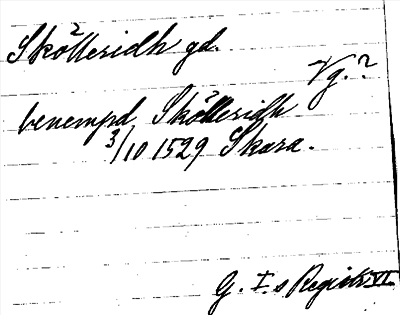 Skölleridh gd.
Vg.?
benempd Skölleridh
3/10 1529 Skara.
G. I.s Registr. VI